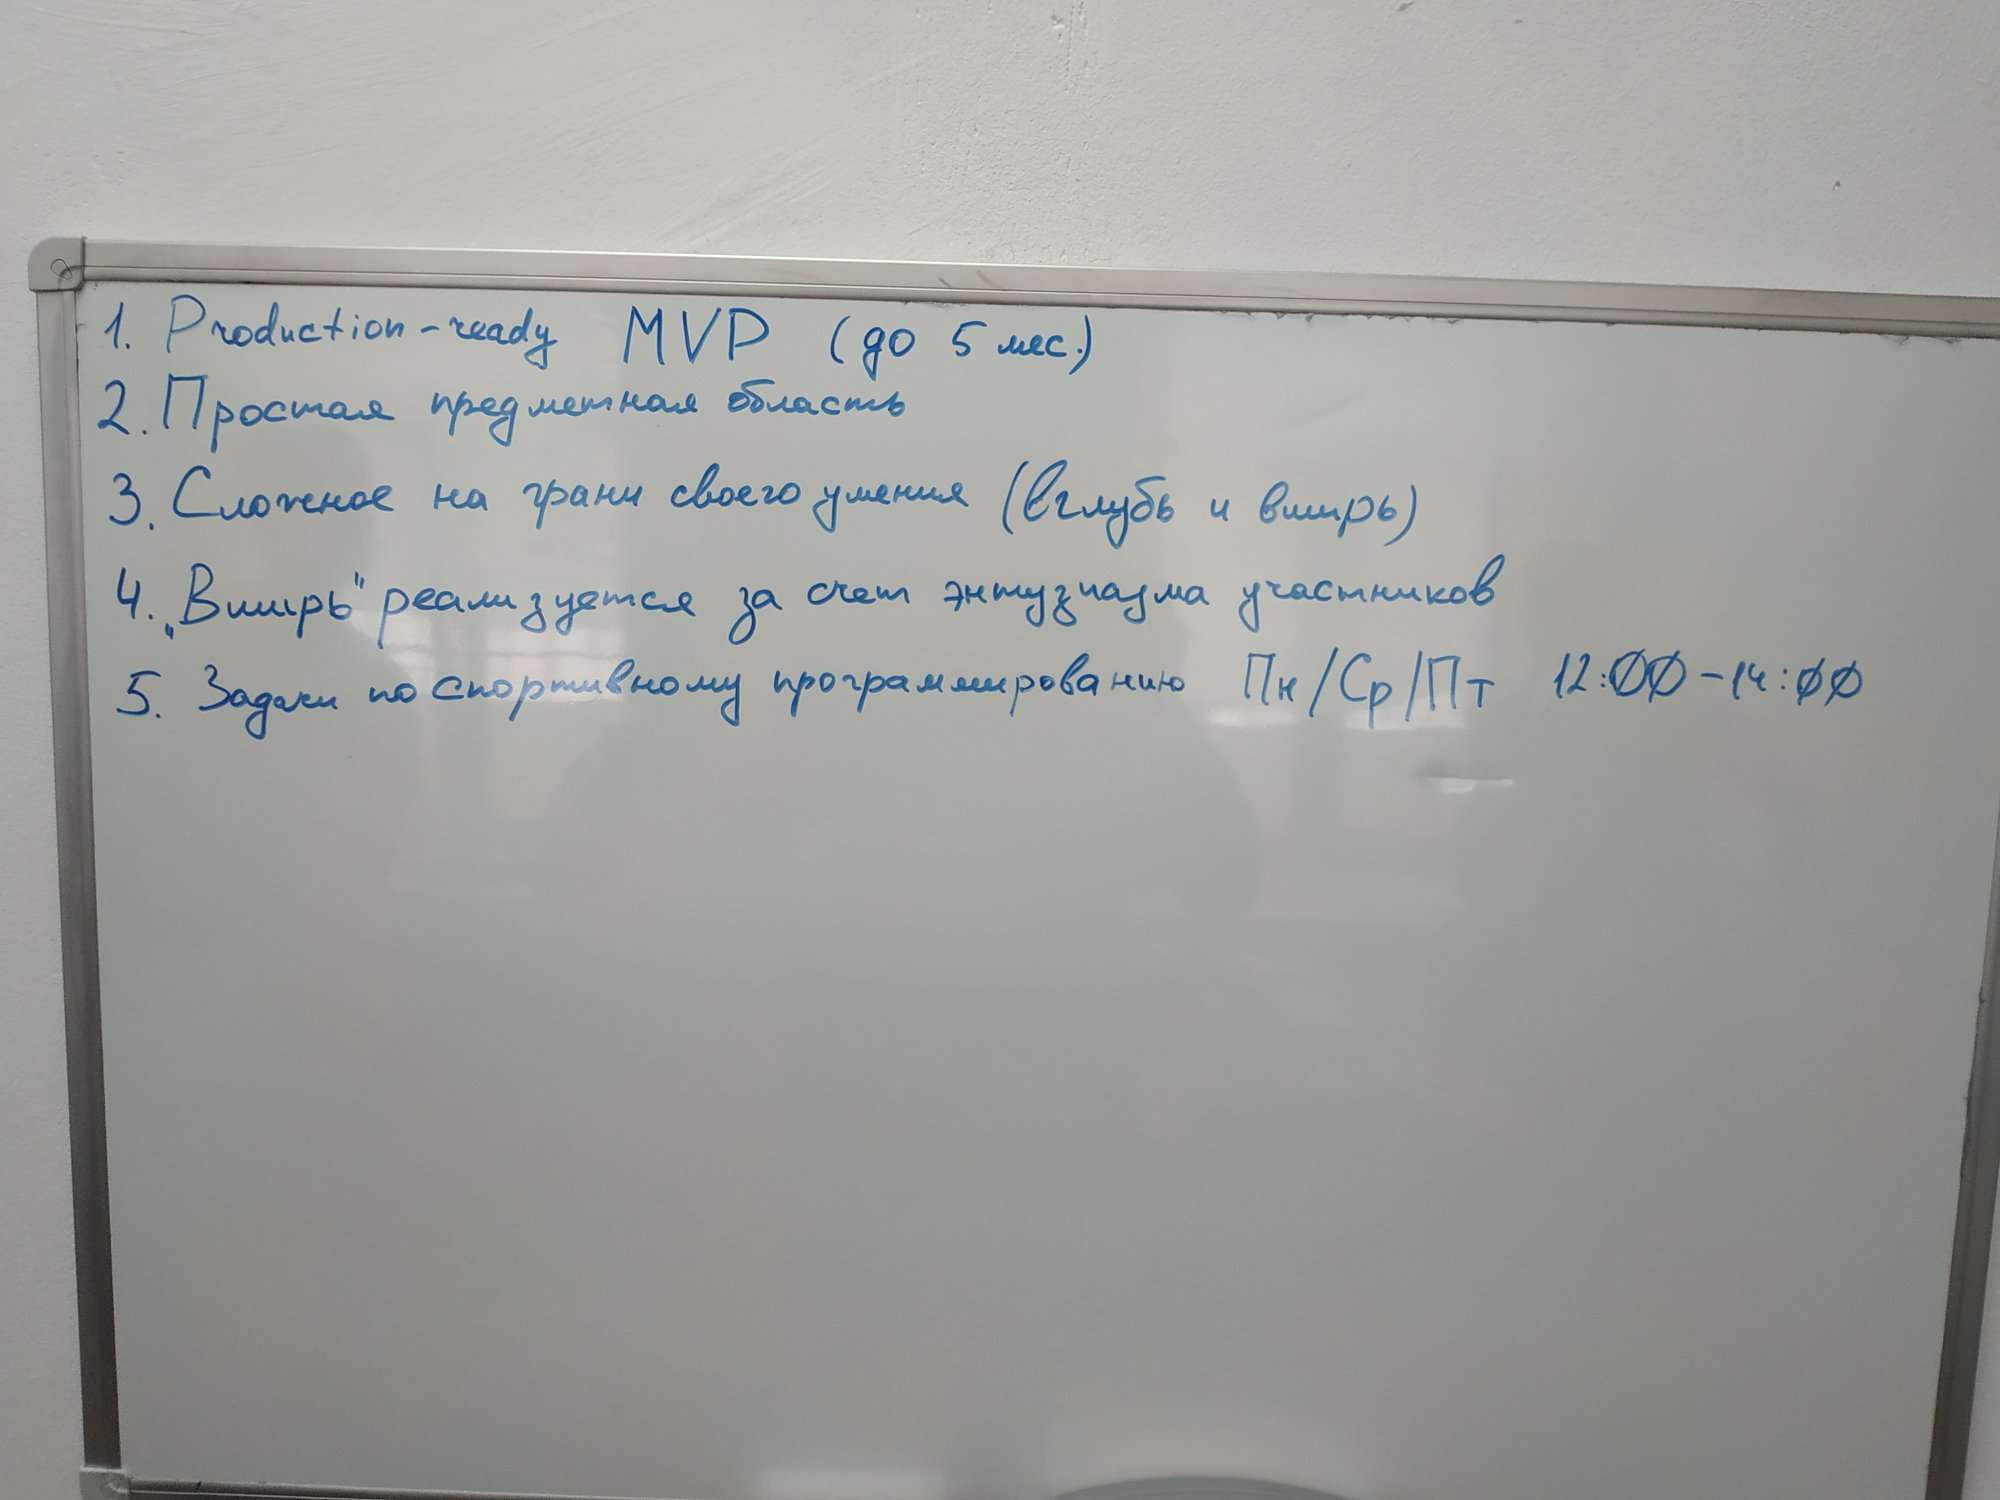 1. Production-ready MVP (до 5 мес.)
2. Простая предметная область
3. Сложное на грани своего умения (вглубь и вширь)
4. „Вширь“ реализуется за счет энтузиазма участников
5. Задачи по спортивному программированию Пн/Ср/Пт 12:00-14:00